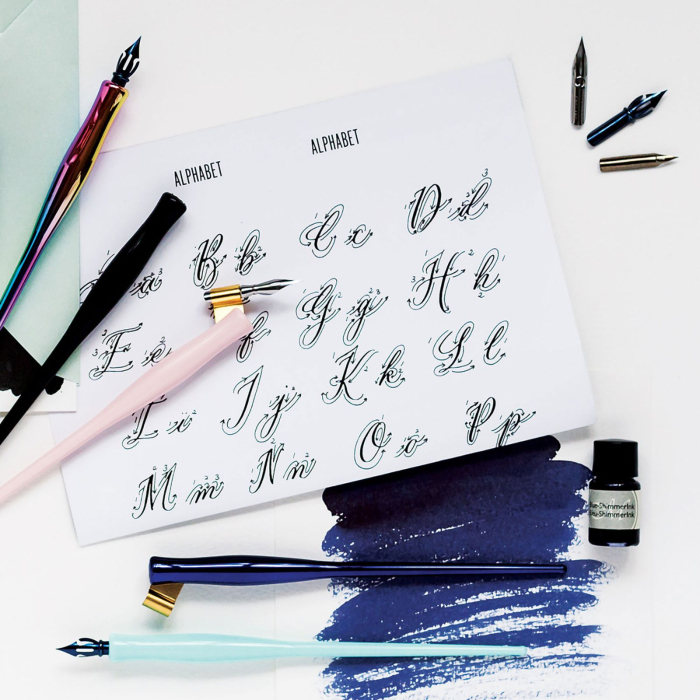 ALPHABET
ALPHABET
a
B b
C c
D d
E e
f
G g
H h
I i
J j
K k
L l
M m
N n
O o
P p
Shimmerink
Shimmerink